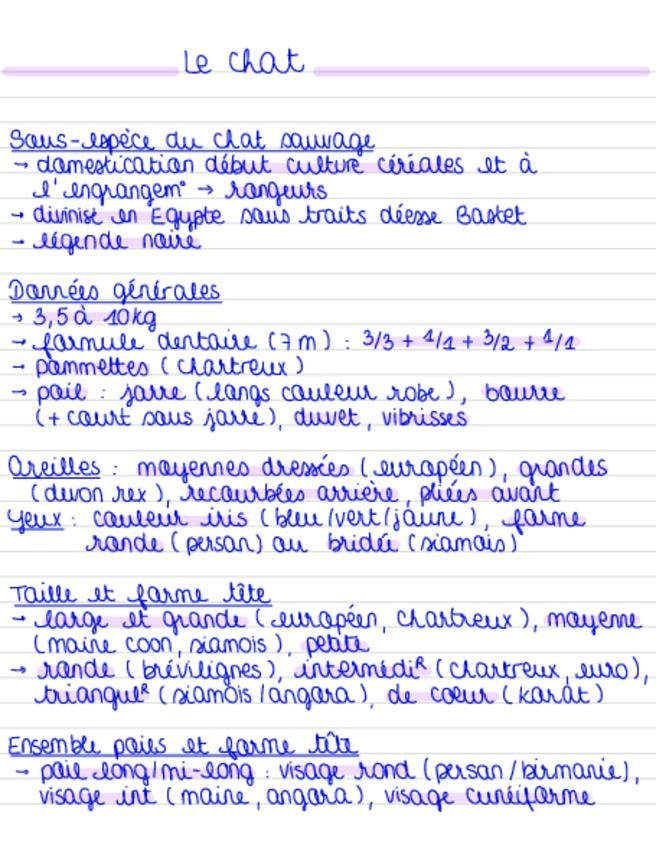 Le chat
Sous-espèce du chat sauvage
→ domestication début culture céréales et à
l'engrangem° → rongeurs
→ divinisé en Egypte sous traits déesse Bastet
→ légende noire
Données générales
→ 3,5 à 10kg
→ formule dentaire (7m) : 3/3 + 1/1 + 3/2 + 1/1
→ pommettes (chartreux)
→ poil : jarre (longs couleur robe), bourre
(+ court sous jarre), duvet, vibrisses
Oreilles : moyennes dressées (européen), grandes
(devon rex), recourbées arrière, pliées avant
Yeux : couleur iris (bleu/vert/jaune), forme
ronde (persan) ou bridée (siamois)
Taille et forme tête
→ large et grande (européen, chartreux), moyenne
(maine coon, siamois), petite
→ ronde (brévilignes), intermédiR (chartreux, euro),
triangulR (siamois/angora), de coeur (korat)
Ensemble poies et forme tête
→ poil long/mi-long : visage rond (persan/birmanie),
visage int (maine, angora), visage cunéiforme